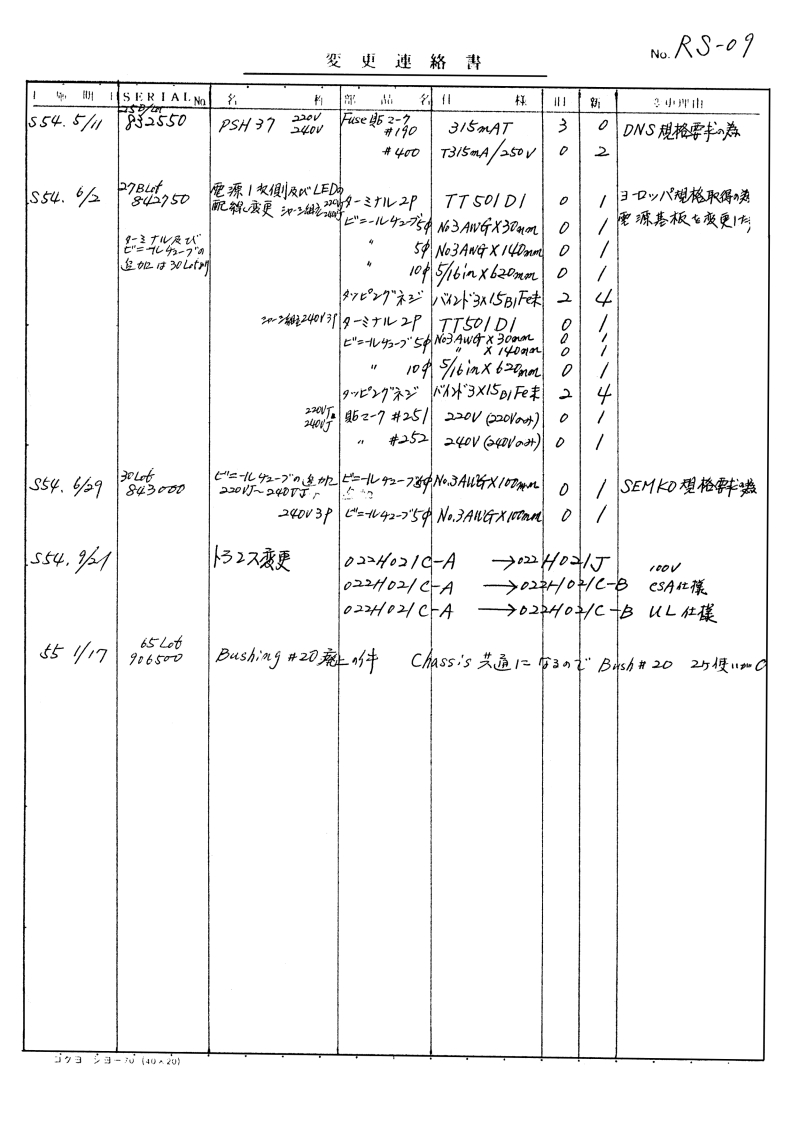 変更連絡書
No. RS-09
SERIAL No 名 称 部 品 名 仕 様 旧 新
S54. 5/11 832550 PSH37 220V 240V Fuse貼マーク #190 315mAT 3 0 DNS規格要求の為
#400 T315mA/250V 0 2
S54. 6/2 27BLot 842750 電源1次側及びLEDの配線変更 シャーシ組立 220VJ 240VJ ターミナル2P TT501D1 0 1 ヨーロッパ規格取得の為
ビニールチューブ5φ No3AWG×30mm 0 1 電源基板を変更した
ターミナル及び
ビニールチューブの
追加は30Lotより
〃 5φ No3AWG×140mm 0 1
〃 10φ 5/16in×620mm 0 1
タッピングネジ バインド3×15B1Fe末 2 4
シャーシ組立240V3P ターミナル2P TT501D1 0 1
ビニールチューブ5φ No3AWG×30mm 0 1
〃 ×140mm 0 1
〃 10φ 5/16in×620mm 0 1
タッピングネジ バインド3×15B1Fe末 2 4
220VJ 貼マーク #251 220V(220Vのみ) 0 1
240VJ 〃 #252 240V(240Vのみ) 0 1
S54. 6/29 30Lot 843000 ビニールチューブの追加 ビニールチューブ5φ No.3AWG×100mm 0 1 SEMKO規格要求の為
220VJ～240VJ
240V3P ビニールチューブ5φ No.3AWG×100mm 0 1
S54. 9/21 トランス変更 022H021C-A →022H021J 100V
022H021C-A →022H021C-B CSA仕様
022H021C-A →022H021C-B UL仕様
55 1/17 65Lot 906500 Bushing #20廃止の件 Chassis共通になるので Bush#20 2ケ使い
コクヨ シヨー70 (40×20)